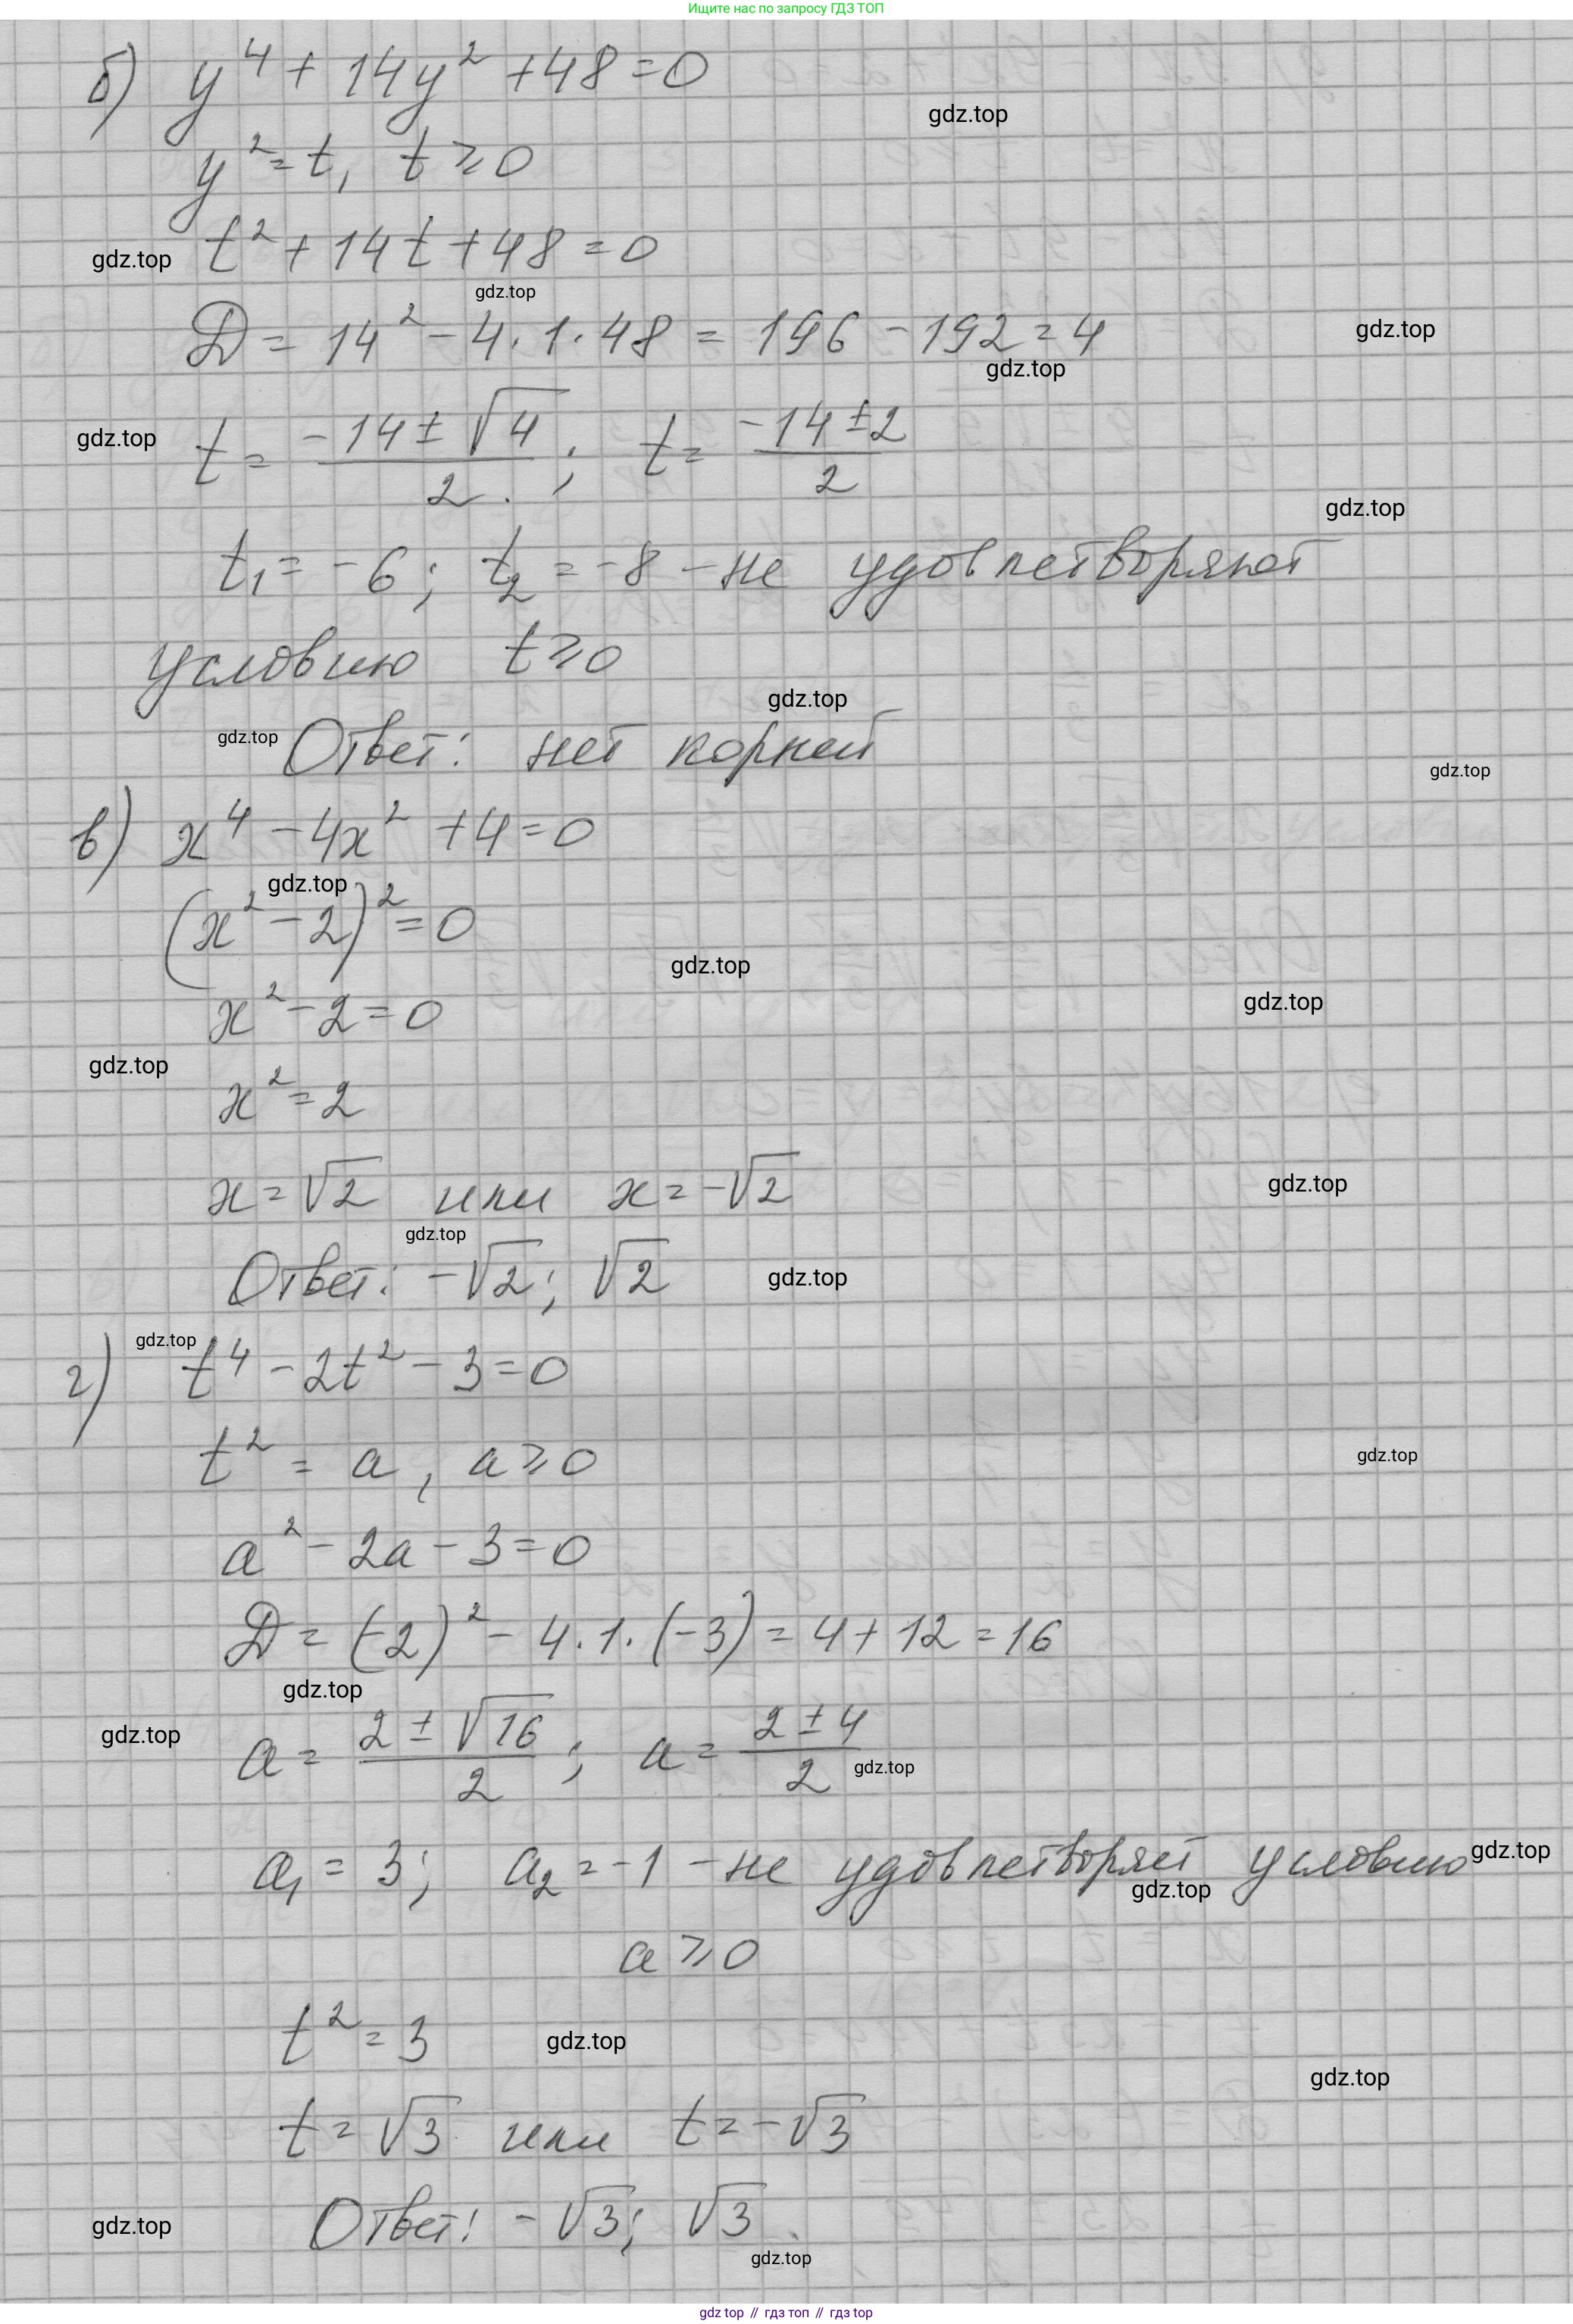 Ищите нас по запросу ГДЗ ТОП
б) y⁴ + 14y² + 48 = 0
gdz.top
y² = t, t ⩾ 0
gdz.top
t² + 14t + 48 = 0
gdz.top
D = 14² - 4 · 1 · 48 = 196 - 192 = 4
gdz.top
gdz.top
gdz.top
t = (-14 ± √4)/2 ; t = (-14 ± 2)/2
gdz.top
t₁ = -6; t₂ = -8 - не удовлетворяют
условию t ⩾ 0
gdz.top
gdz.top
Ответ: нет корней
gdz.top
в) x⁴ - 4x² + 4 = 0
gdz.top
(x² - 2)² = 0
gdz.top
gdz.top
x² - 2 = 0
gdz.top
x² = 2
x = √2 или x = -√2
gdz.top
gdz.top
Ответ: -√2; √2
gdz.top
gdz.top
г) t⁴ - 2t² - 3 = 0
t² = a, a ⩾ 0
gdz.top
a² - 2a - 3 = 0
D = (-2)² - 4 · 1 · (-3) = 4 + 12 = 16
gdz.top
gdz.top
a = (2 ± √16)/2 ; a = (2 ± 4)/2
gdz.top
a₁ = 3; a₂ = -1 - не удовлетворяет условию
gdz.top
gdz.top
a ⩾ 0
t² = 3
gdz.top
gdz.top
t = √3 или t = -√3
Ответ: -√3; √3.
gdz.top
gdz.top
gdz top // гдз топ // гдз top